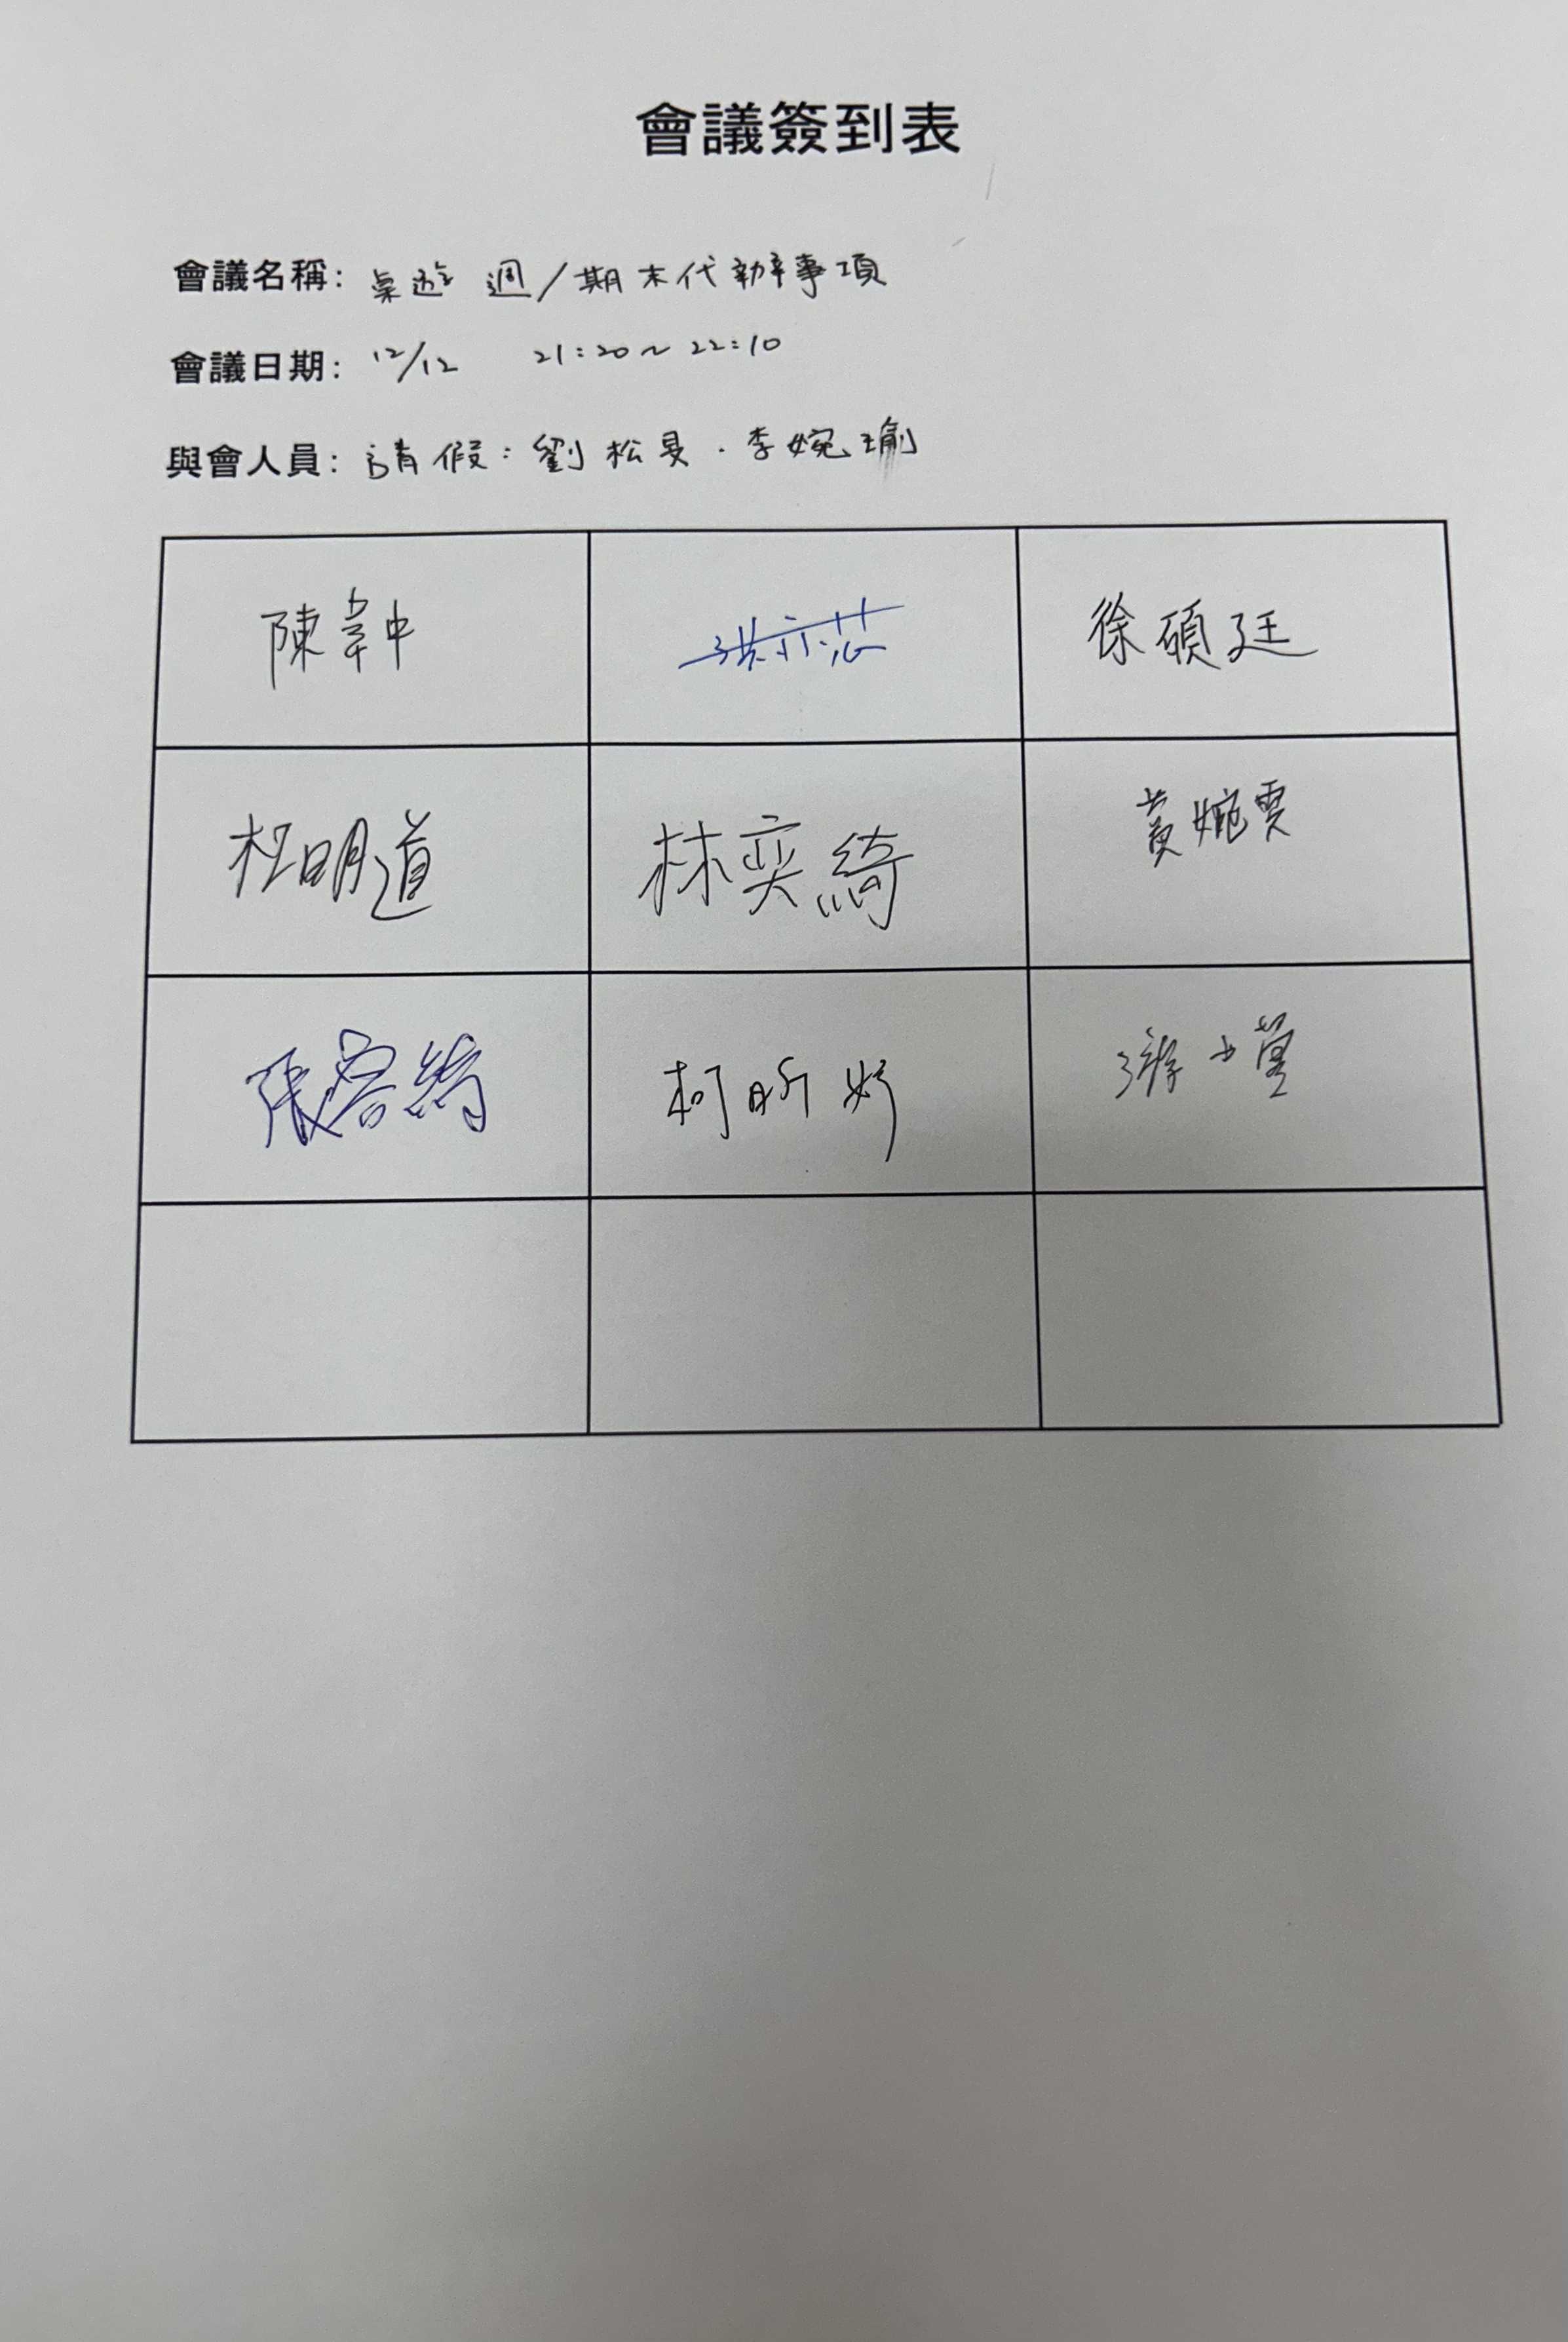 會議簽到表
會議名稱：桌遊週/期末代辦事項
會議日期：12/12 21:20~22:10
與會人員：請假：劉松旻．李婉瑜
陳韋中 洪亦芯 徐碩廷
杜明道 林奕綺 黃婉雯
張容綺 柯昕妤 游小萱